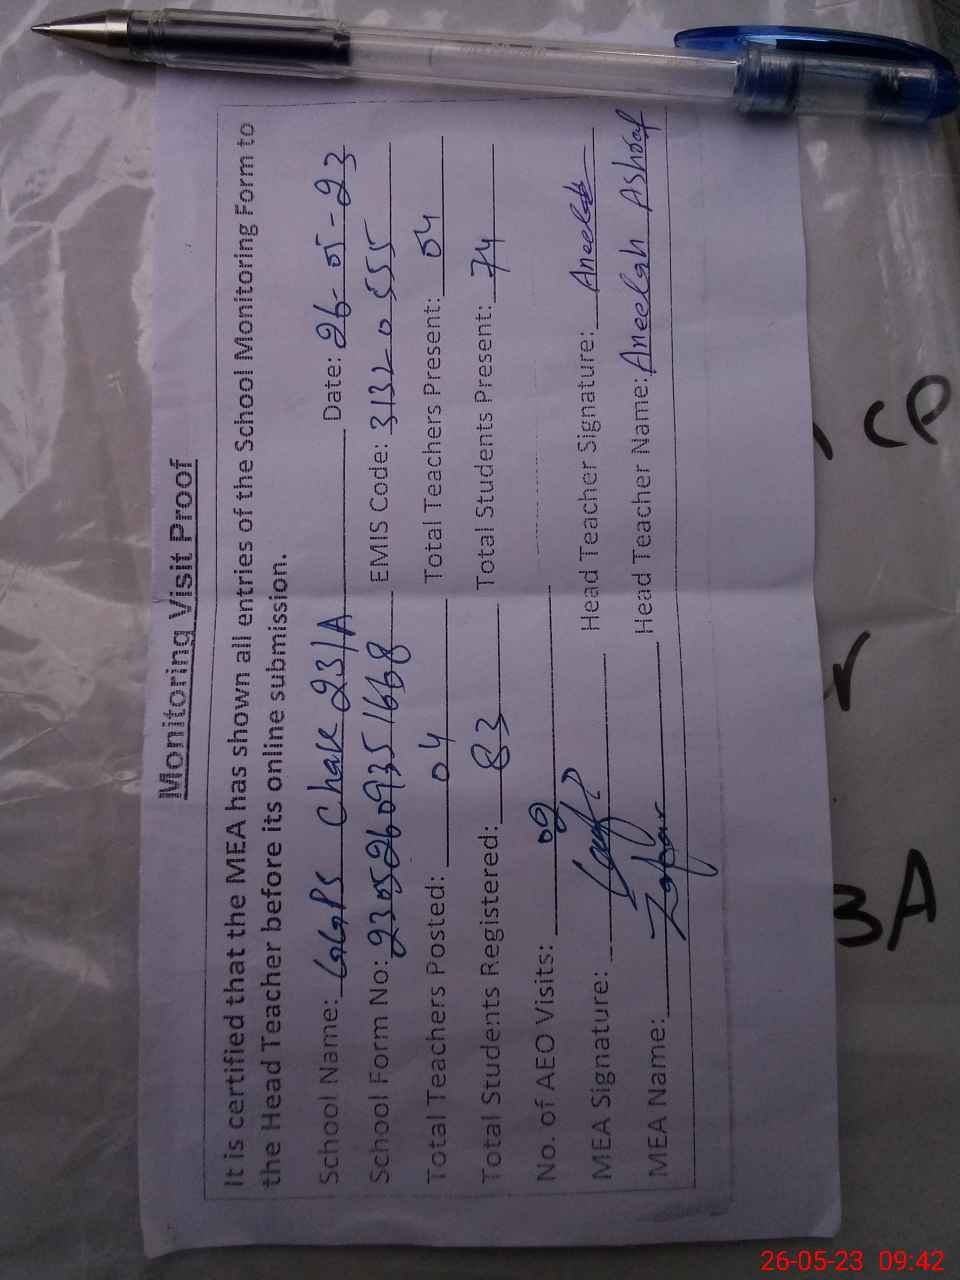 Monitoring Visit Proof
It is certified that the MEA has shown all entries of the School Monitoring Form to
the Head Teacher before its online submission.
School Name: GGPS Chak 231A Date: 26-05-23
School Form No: 23052609351668 EMIS Code: 31320555
Total Teachers Posted: 04 Total Teachers Present: 04
Total Students Registered: 83 Total Students Present: 74
No. of AEO Visits: 09
MEA Signature: Head Teacher Signature: Aneelah
MEA Name: Zafar Head Teacher Name: Aneelah Ashraf
CP
r
3A
26-05-23 09:42